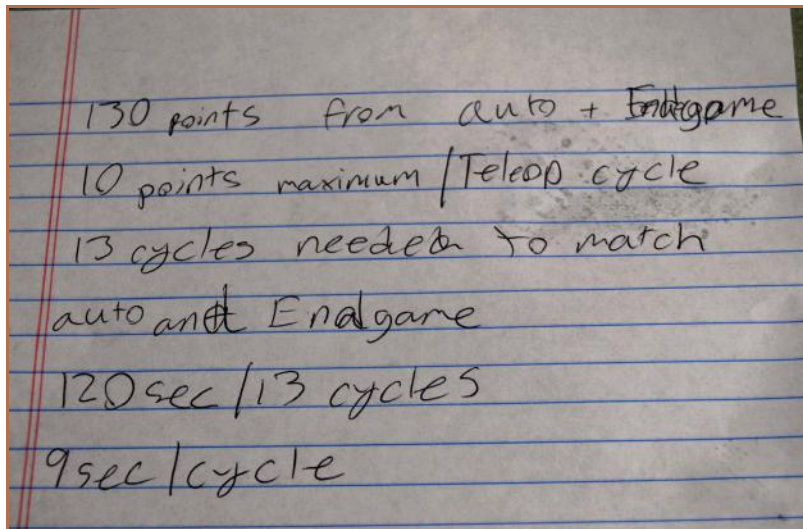 130 points from auto + Endgame
10 points maximum / Teleop cycle
13 cycles needed to match
auto and Endgame
120 sec / 13 cycles
9 sec / cycle